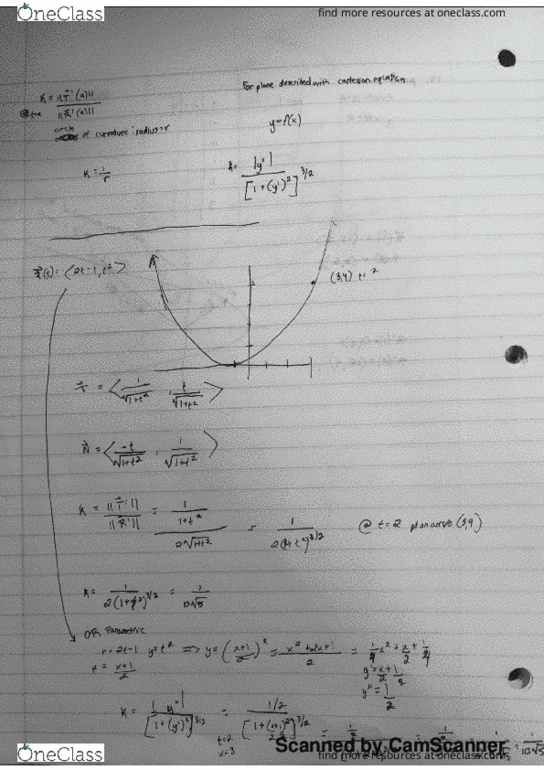 OneClass
find more resources at oneclass.com
K = ||T'(a)|| / ||R'(a)||
For plane described with cartesian equation
circle of curvature radius = r
y = f(x)
K = 1/r
K = |y''| / [1+(y')²]^3/2
R(t) = <2t-1, t²>
(3,4) t=2
T = <1/√1+t², t/√1+t²>
N = <-t/√1+t², 1/√1+t²>
K = ||T'|| / ||R'|| = 1/1+t² / 2√1+t² = 1/2(1+t²)^3/2 @ t=2 pt on curve (3,4)
K = 1/2(1+2²)^3/2 = 1/10√5
OR Parametric
x = 2t-1 y = t² => y = (x+1/2)² = x²+2x+1/2 = 1/4x² + x/2 + 1/4
t = x+1/2
y' = x/2 + 1/2
y'' = 1/2
K = |y''| / [1+(y')²]^3/2 = 1/2 / [1+(x+1/2)²]^3/2
t=2
x=3
Scanned by CamScanner
OneClass
find more resources at oneclass.com